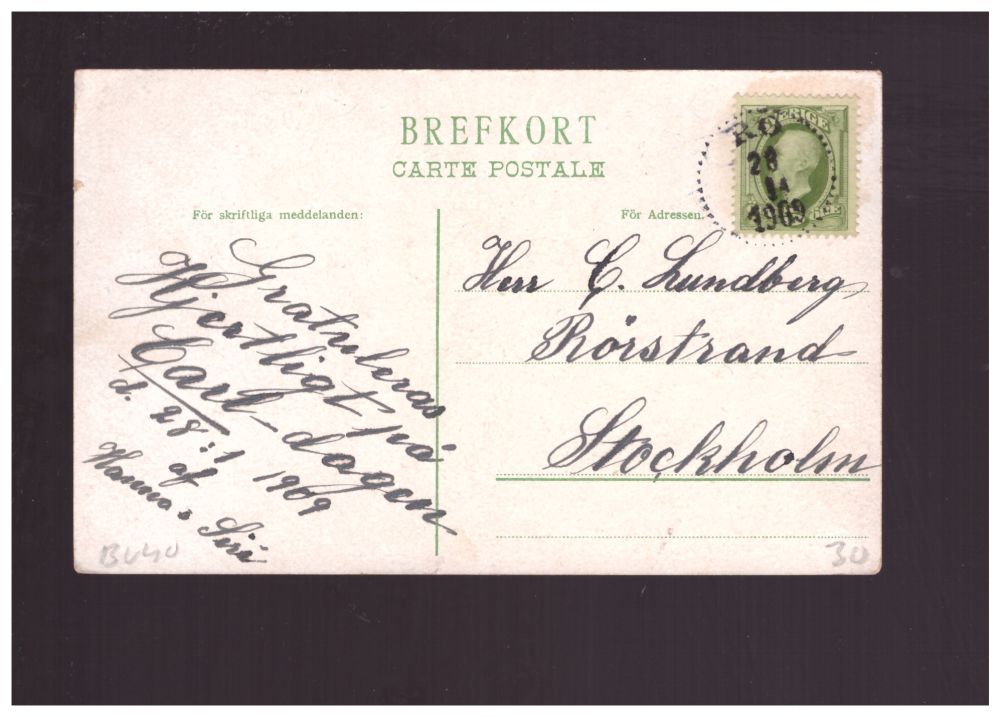 BREFKORT
CARTE POSTALE
För skriftliga meddelanden:
För Adressen.
SVERIGE
RÖ
28
1909
Gratuleras
Hjertligt på
Carl-dagen
d. 28:1 1909
af
Hanna o Siri
Herr C. Lundberg
Rörstrand
Stockholm
30